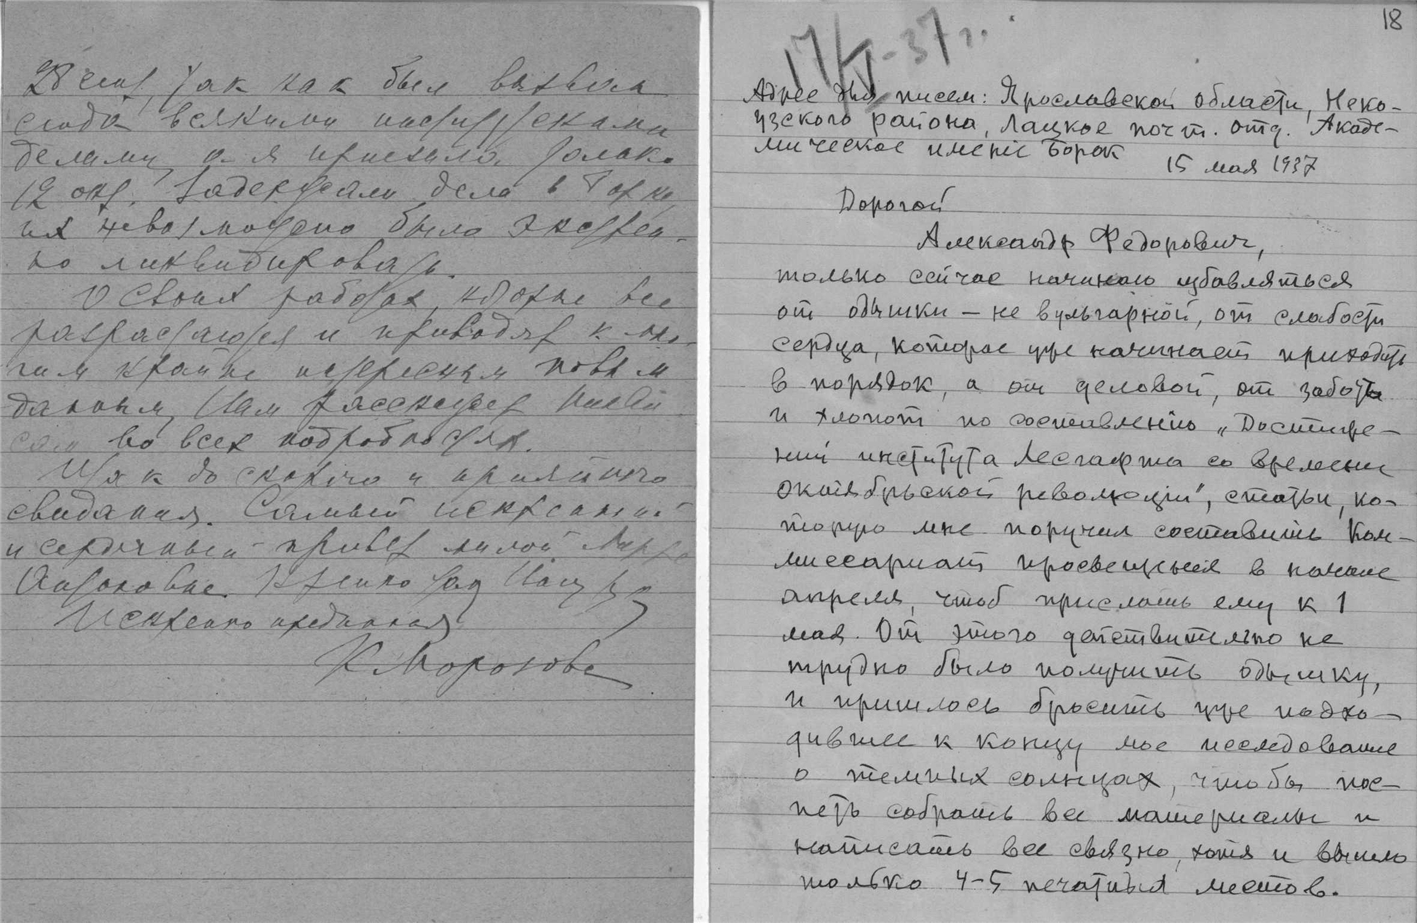 так как был вызван
сюда всякими институтскими
делами, а я приехала только
12 окт. Задержали дела в Борке,
их невозможно было экстрен-
но ликвидировать.
О своих работах, которые все
разрастаются и приводят к мно-
гим крайне интересным новым
данным, Вам расскажет Николай
сам во всех подробностях.
Итак до скорого и приятного
свидания. Самый искренний
и сердечный привет милой
Антоновне. Крепко жму Вашу руку
Искренно преданная
К Морозова
18
17/V-37 г.
Адрес для писем: Ярославской области, Неко-
узского района, Лацкое почт. отд. Акаде-
мическое имение Борок
15 мая 1937
Дорогой
Александр Федорович,
только сейчас начинаю избавляться
от одышки – не вульгарной, от слабости
сердца, которое уже начинает приходить
в порядок, а от деловой, от заботы
и хлопот по составлению „Достиже-
ний института Лесгафта со времени
октябрьской революции", статьи, ко-
торую мне поручил составить Ком-
миссариат просвещения в начале
апреля, чтоб прислать ему к 1
мая. От этого действительно не
трудно было получить одышку,
и пришлось бросить уже подхо-
дившее к концу мое исследование
о темных солнцах, чтобы пос-
петь собрать все материалы и
написать все связно, хотя и вышло
только 4-5 печатных листов.